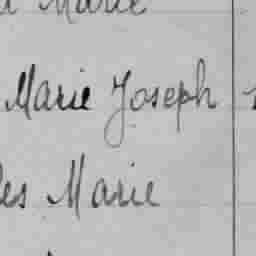 Marie
Marie Joseph
les Marie